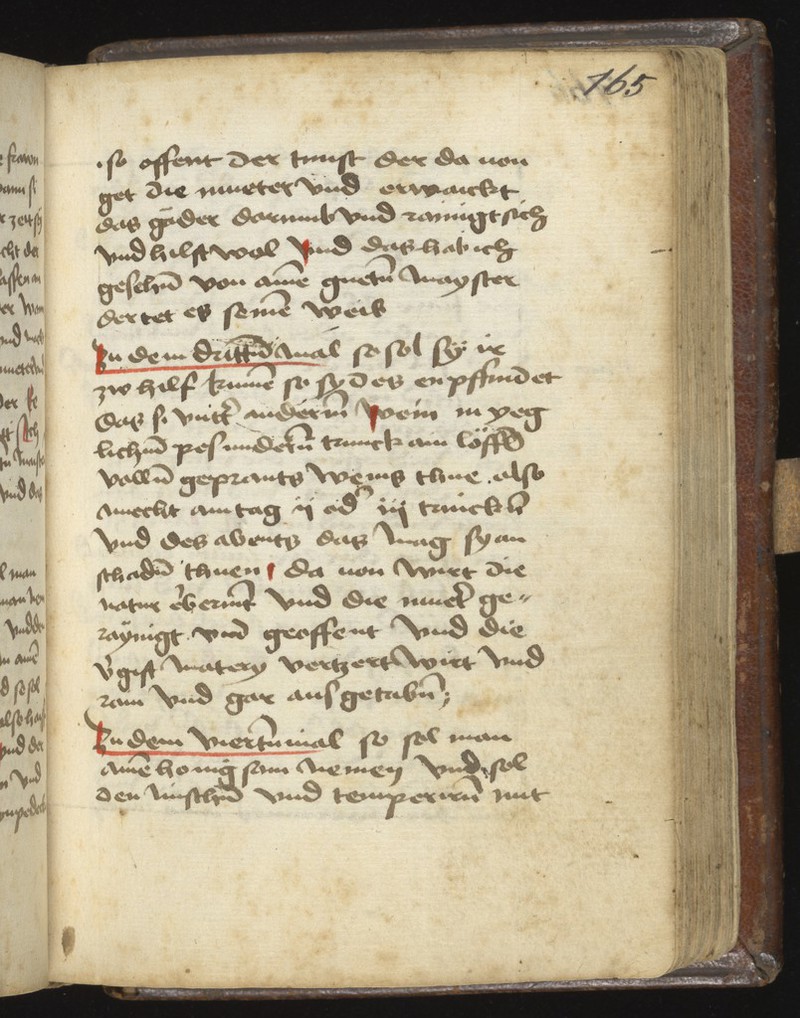 165
so offent der tunst der da uon
get die mueter vnd erwaickt
das gäder darumb vnd rainigt sich
vnd hilft wol vnd das hab ich
gesehn̄ von aine guetn̄ mayster
der tet es seinē weib
Zu dem drittn̄ mal so sol sy ir
zw hilf kumē so sy des enpfindet
das si vntter anderm̄ wein in yeg
lichm̄ pesundern̄ trunck ain löffl̄
volln̄ geprants weins thue also
macht am tag ij od iij trinckn̄
vnd des abents das mag sy an
schadn̄ thuen da uon wirt die
natur erbermt vnd die muetr̄ ge-
raÿnigt vnd geoffent vnd die
vgift matery vertzert wirt vnd
rain vnd gar ausgetribn̄
Zu dem viertn̄ mal so sol man
ainē honigsam nemen vnd sol
den mischn̄ vnd temperirn̄ mit